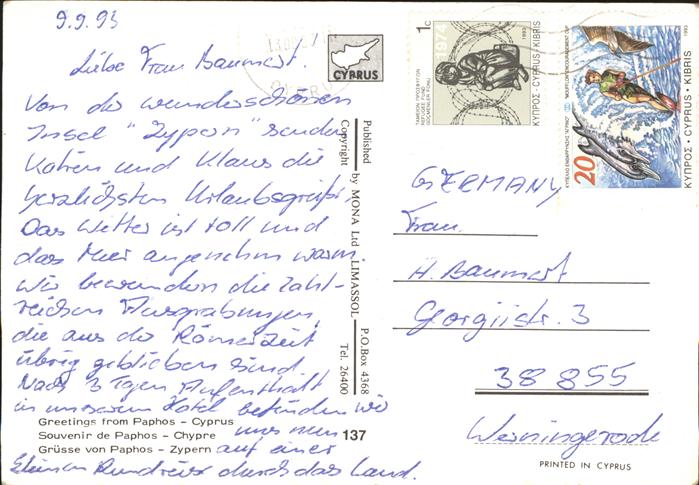 9.9.93
Liebe Frau Baumart.
Von der wunderschönen
Insel "Zypern" senden
Katren und Klaus die
herzlichsten Urlaubsgrüße.
Das Wetter ist toll und
das Meer angenehm warm.
Wir bewundern die zahl-
reichen Ausgrabungen,
die aus der Römerzeit
übrig geblieben sind.
Nach 3 Tagen Aufenthalt
in unserem Hotel befinden wir
uns nun
auf einer
kleinen Rundreise durch das Land.
Greetings from Paphos – Cyprus
Souvenir de Paphos – Chypre
Grüsse von Paphos – Zypern
137
CYPRUS
Published by MONA Ltd LIMASSOL – P.O.Box 4368
Copyright Tel. 26400
1c
1974
1993
ΤΑΜΕΙΟΝ ΠΡΟΣΦΥΓΩΝ
REFUGEE FUND
GÖÇMENLER FONU
ΚΥΠΡΟΣ·CYPRUS·KIBRIS
20
1993
ΚΥΠΡΟΣ · CYPRUS · KIBRIS
GERMANY
Frau
H. Baumart
Georgiistr. 3
38 855
Werningerode
PRINTED IN CYPRUS